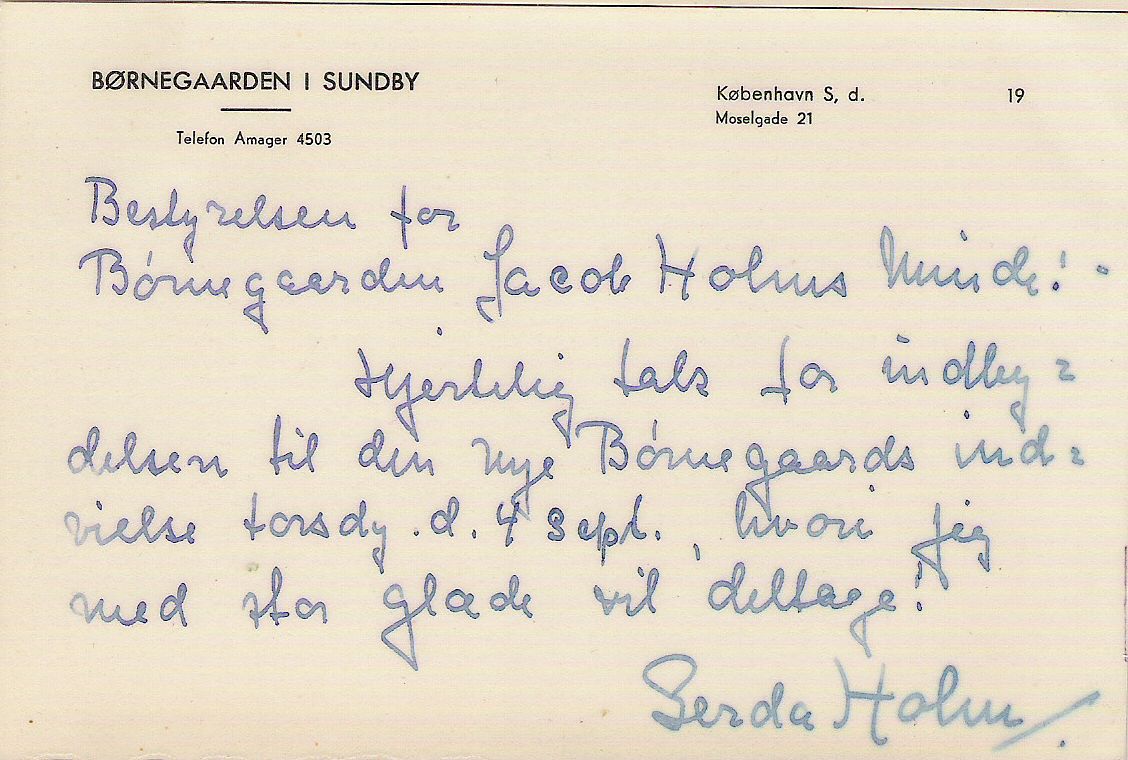 BØRNEGAARDEN I SUNDBY
Telefon Amager 4503
København S, d. 19
Moselgade 21
Bestyrelsen for
Børnegaarden Jacob Holms Minde!
Hjertelig tak for indby=
delsen til den nye Børnegaards ind=
vielse torsdg. d. 4 Sept., hvori jeg
med stor glæde vil deltage!
Gerda Holm/.